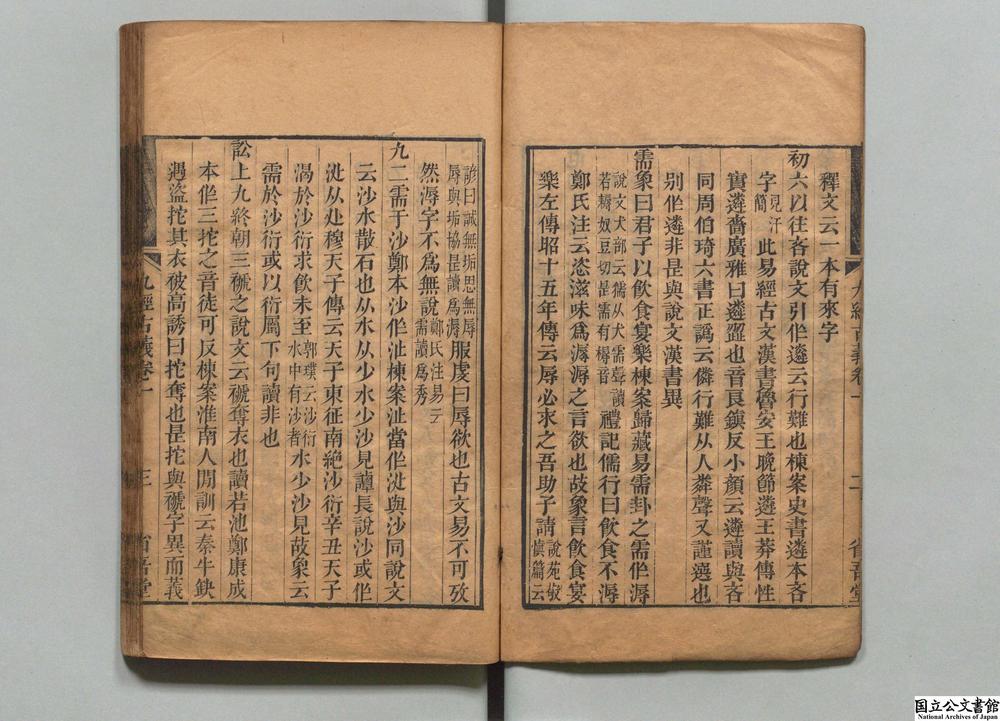 釋文云一本有來字
初六以往吝說文引作遴云行難也棟案史書遴本吝
字見汗簡此易經古文漢書魯安王晚節遴王莽傳性
實遴嗇廣雅曰遴䜣也音艮鎭反小顏云遴讀與吝
同周伯琦六書正譌云僯行難从人粦聲又謹選也
别作遴非是與說文漢書異
需象曰君子以飲食宴樂棟案歸藏易需卦之需作溽
說文犬部云獳从犬需聲讀若槈奴豆切是需有槈音禮記儒行曰飲食不溽
鄭氏注云恣滋味爲溽溽之言欲也故象言飲食宴
樂左傳昭十五年傳云辱必求之吾助子請說苑敏愼篇云
諺曰誠無垢思無辱辱與垢協是讀爲溽服虔曰辱欲也古文易不可攷
然溽字不爲無說鄭氏注易云需讀爲秀
九二需于沙鄭本沙作沚棟案沚當作沙與沙同說文
云沙水散石也从水从少水少沙見譚長說沙或作
沙从沚穆天子傳云天子東征南絶沙衍辛丑天子
渴於沙衍求飲未至郭璞云沙衍水中有沙者水少沙見故象云
需於沙衍或以衍屬下句讀非也
訟上九終朝三褫之說文云褫奪衣也讀若池鄭康成
本作三拕之音徒可反棟案淮南人閒訓云秦牛缺
遇盗拕其衣被高誘曰拕奪也是拕與褫字異而義
九經古義卷一
二
省吾堂
九經古義卷一
三
省吾堂
国立公文書館
National Archives of Japan